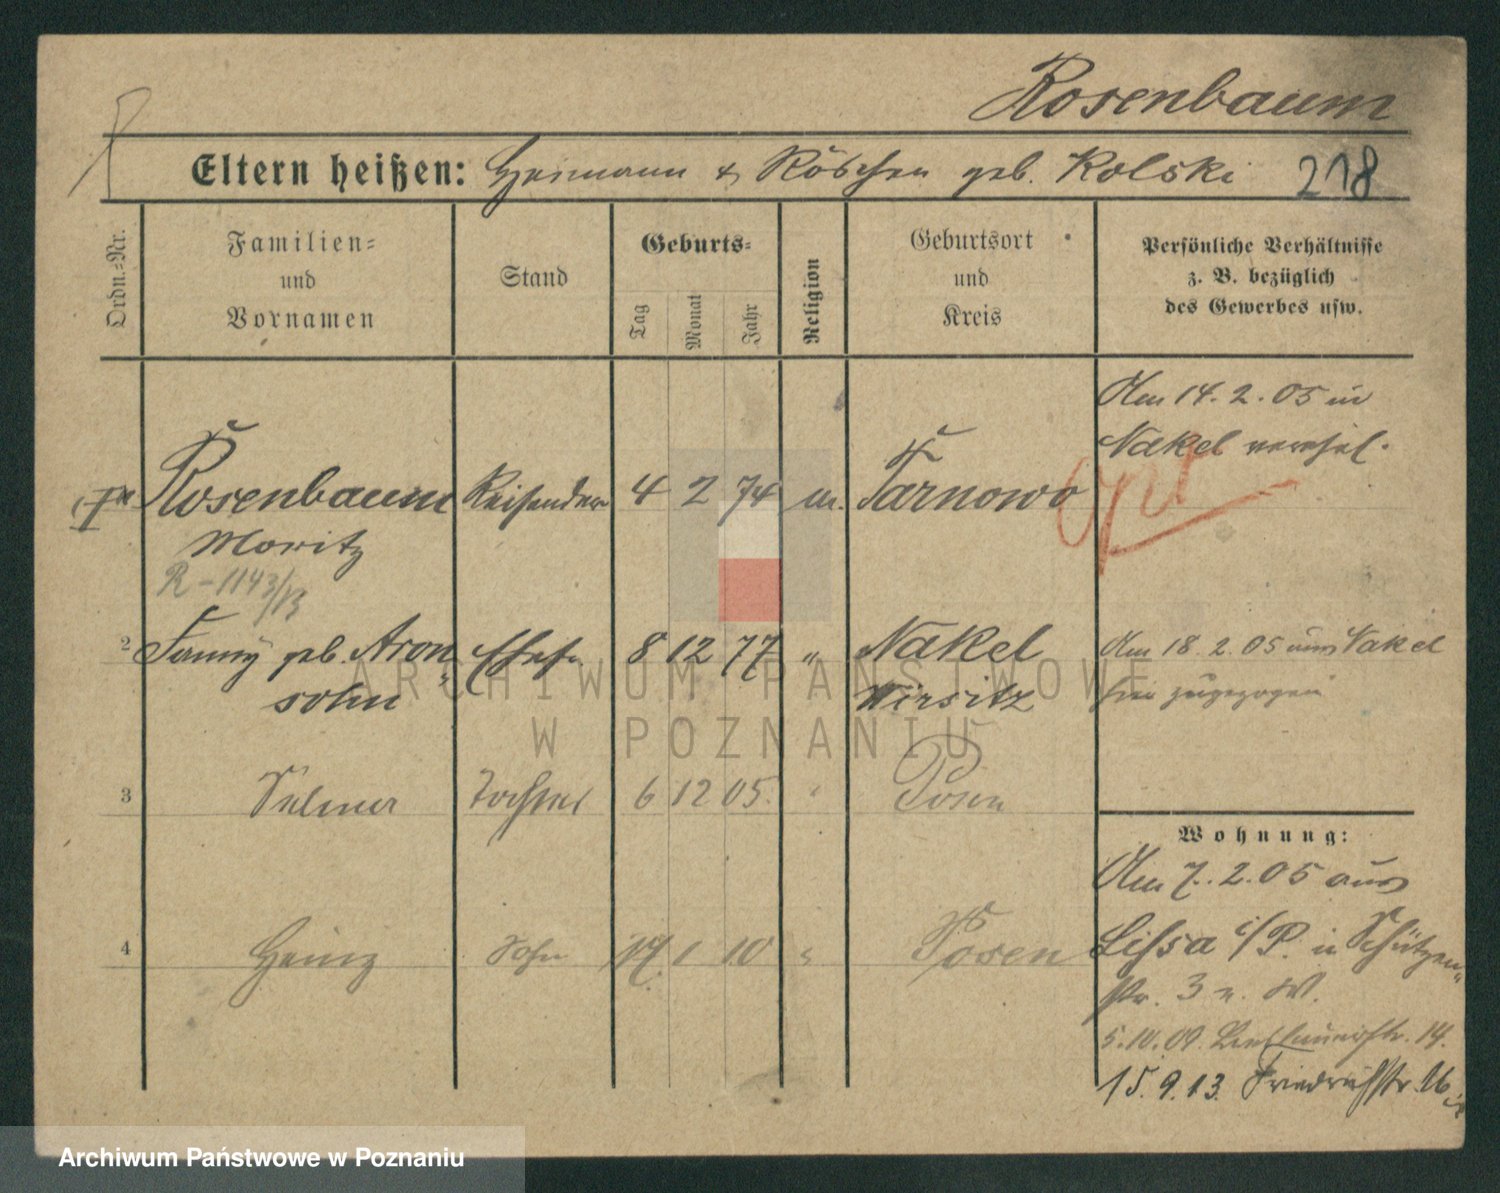 Rosenbaum
Eltern heißen: Heimann & Röschen geb. Kolski 218
Ordn.=Nr.
Familien=
und
Vornamen
Stand
Geburts=
Tag
Monat
Jahr
Religion
Geburtsort
und
Kreis
Persönliche Verhältnisse
z. B. bezüglich
des Gewerbes usw.
Am 14. 2. 05 in
Nakel verehel.
Rosenbaum Reisender 4 2 74 m. Tarnowo
Moritz
R - 1143/13
2 Fanny geb. Aron„ Ehefr. 8 12 77 „ Nakel
sohn Wirsitz
Am 18. 2. 05 aus Nakel
hier zugezogen
3 Selma Tochter 6 12 05. „ Posen
4 Heinz Sohn 17. 1 10 „ Posen
Wohnung:
Am 7. 2. 05 aus
Lissa i/P. in Schützen„
str. 3 n. W.
5. 10. 09. 14.
15. 9. 13. Friedrichstr. 16
ARCHIWUM PAŃSTWOWE
W POZNANIU
Archiwum Państwowe w Poznaniu